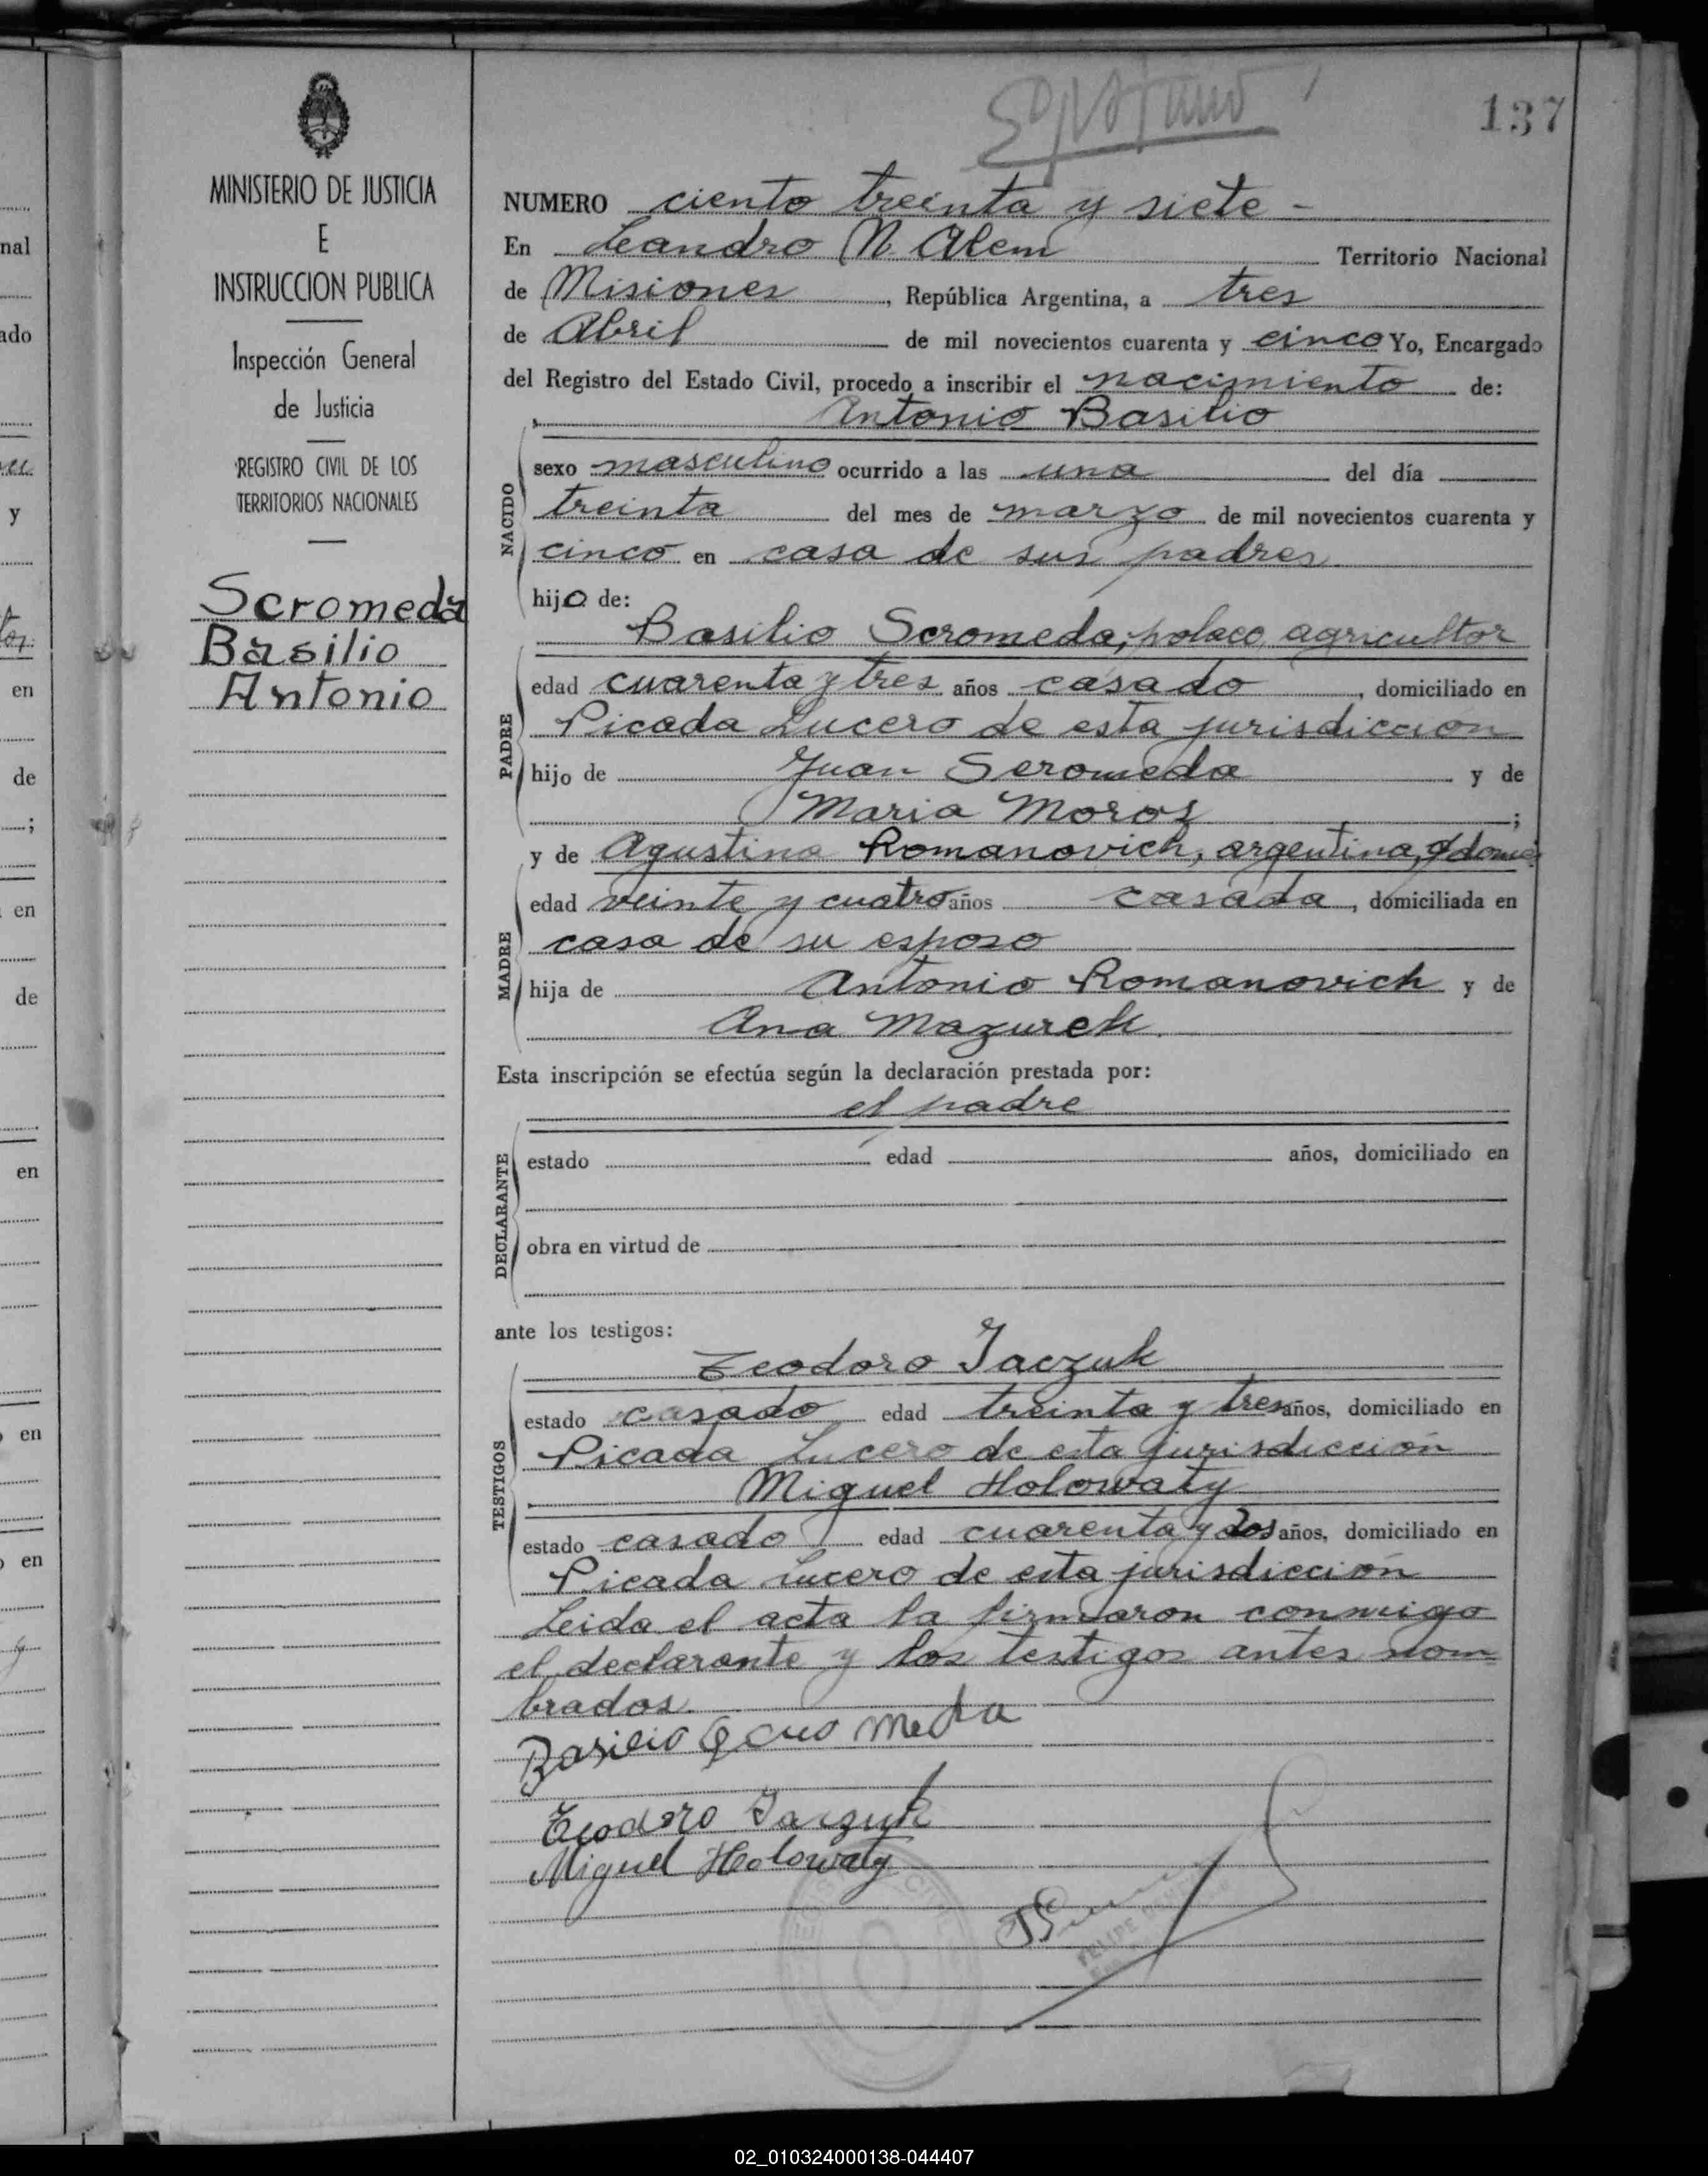 137
MINISTERIO DE JUSTICIA
E
INSTRUCCION PUBLICA
Inspección General
de Justicia
REGISTRO CIVIL DE LOS
TERRITORIOS NACIONALES
Scromeda
Basilio
Antonio
NUMERO ciento treinta y siete -
En Leandro N. Alem Territorio Nacional
de Misiones, República Argentina, a tres
de Abril de mil novecientos cuarenta y cinco Yo, Encargado
del Registro del Estado Civil, procedo a inscribir el nacimiento de:
Antonio Basilio
NACIDO
sexo masculino ocurrido a las una del día
treinta del mes de marzo de mil novecientos cuarenta y
cinco en casa de sus padres
hijo de:
Basilio Scromeda, polaco, agricultor
PADRE
edad cuarenta y tres años casado, domiciliado en
Picada Lucero de esta jurisdiccion
hijo de Juan Scromeda y de
Maria Moroz;
y de Agustina Romanovich, argentina,
MADRE
edad veinte y cuatro años casada, domiciliada en
casa de su esposo
hija de Antonio Romanovich y de
Ana Mazurek.
Esta inscripción se efectúa según la declaración prestada por:
el padre
DECLARANTE
estado edad años, domiciliado en
obra en virtud de
ante los testigos:
Teodoro Jaczuk
TESTIGOS
estado casado edad treinta y tres años, domiciliado en
Picada Lucero de esta jurisdicción
Miguel Holowaty
estado casado edad cuarenta y dos años, domiciliado en
Picada Lucero de esta jurisdicción
Leida el acta la firmaron conmigo
el declarante y los testigos antes nom
brados.
Basilio Scromeda
Teodoro Jaczuk
Miguel Holowaty
FELIPE
nal
ado
y
en
de
;
en
de
en
en
en
02_010324000138-044407